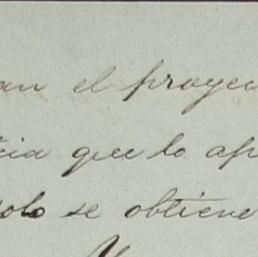 an el proyec
cia que lo ap
solo se obtiene